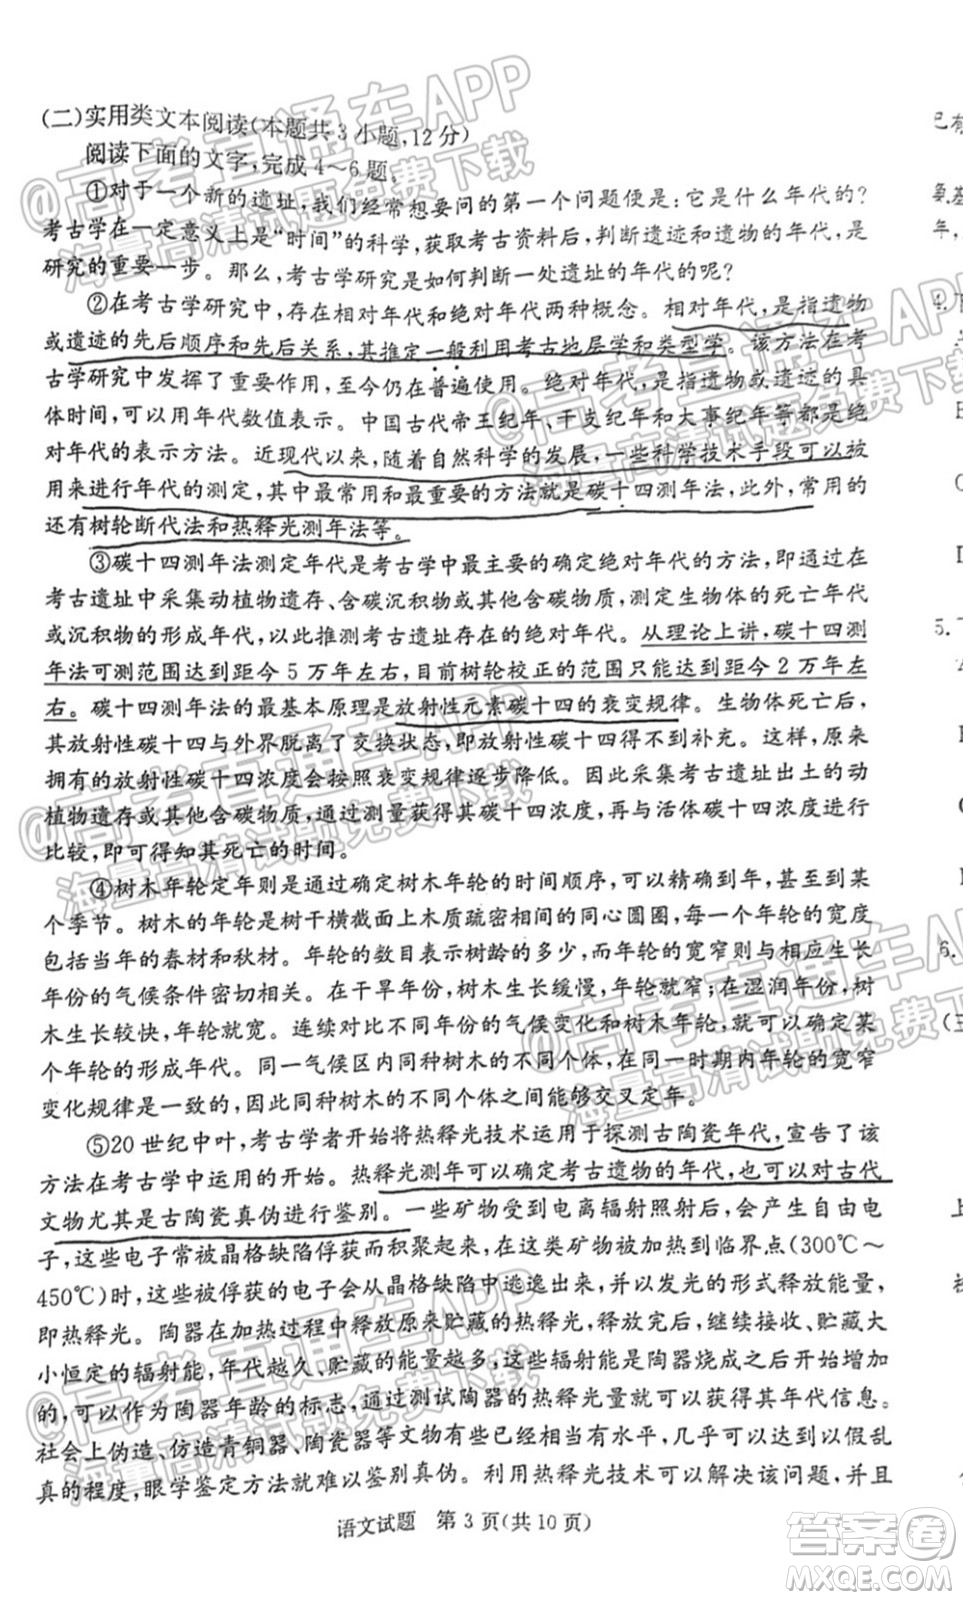 (二)实用类文本阅读(本题共3小题,12分)
阅读下面的文字,完成4~6题。
①对于一个新的遗址,我们经常想要问的第一个问题便是:它是什么年代的?
考古学在一定意义上是“时间”的科学,获取考古资料后,判断遗迹和遗物的年代,是
研究的重要一步。那么,考古学研究是如何判断一处遗址的年代的呢?
②在考古学研究中,存在相对年代和绝对年代两种概念。相对年代,是指遗物
或遗迹的先后顺序和先后关系,其推定一般利用考古地层学和类型学。该方法在考
古学研究中发挥了重要作用,至今仍在普遍使用。绝对年代,是指遗物或遗迹的具
体时间,可以用年代数值表示。中国古代帝王纪年、干支纪年和大事纪年等都是绝
对年代的表示方法。近现代以来,随着自然科学的发展,一些科学技术手段可以被
用来进行年代的测定,其中最常用和最重要的方法就是碳十四测年法,此外,常用的
还有树轮断代法和热释光测年法等。
③碳十四测年法测定年代是考古学中最主要的确定绝对年代的方法,即通过在
考古遗址中采集动植物遗存、含碳沉积物或其他含碳物质,测定生物体的死亡年代
或沉积物的形成年代,以此推测考古遗址存在的绝对年代。从理论上讲,碳十四测
年法可测范围达到距今5万年左右,目前树轮校正的范围只能达到距今2万年左
右。碳十四测年法的最基本原理是放射性元素碳十四的衰变规律。生物体死亡后,
其放射性碳十四与外界脱离了交换状态,即放射性碳十四得不到补充。这样,原来
拥有的放射性碳十四浓度会按照衰变规律逐步降低。因此采集考古遗址出土的动
植物遗存或其他含碳物质,通过测量获得其碳十四浓度,再与活体碳十四浓度进行
比较,即可得知其死亡的时间。
④树木年轮定年则是通过对树木年轮的时间顺序,可以精确到年,甚至到某
个季节。树木的年轮是树干横截面上木质疏密相间的同心圆圈,每一个年轮的宽度
包括当年的春材和秋材。年轮的数目表示树龄的多少,而年轮的宽窄则与相应生长
年份的气候条件密切相关。在干旱年份,树木生长缓慢,年轮就窄;在湿润年份,树
木生长较快,年轮就宽。连续对比不同年份的气候变化和树木年轮,就可以确定某
个年轮的形成年代。同一气候区内同种树木的不同个体,在同一时期内年轮的宽窄
变化规律是一致的,因此同种树木的不同个体之间能够交叉定年。
⑤20世纪中叶,考古学者开始将热释光技术运用于探测古陶瓷年代,宣告了该
方法在考古学中运用的开始。热释光测年可以确定考古遗物的年代,也可以对古代
文物尤其是古陶瓷真伪进行鉴别。一些矿物受到电离辐射照射后,会产生自由电
子,这些电子常被晶格缺陷俘获而积聚起来,在这类矿物被加热到临界点(300℃~
450℃)时,这些被俘获的电子会从晶格缺陷中逃逸出来,并以发光的形式释放能量,
即热释光。陶器在加热过程中释放原来贮藏的能量,释放完后,继续接收、贮藏大
小恒定的辐射能,年代越久、贮藏的能量越多,这些辐射能是陶器烧成之后开始累积
的,可以作为陶器年龄的标志,通过测试陶器的热释光量就可以获得其年代信息。
社会上伪造、仿造青铜器、陶瓷器等文物有些已经相当有水平,几乎可以达到以假乱
真的程度,眼学鉴定方法就难以鉴别真伪。利用热释光技术可以解决该问题,并且
语文试题 第3页(共10页)
已有
年,
4.
5.
6.
(三
@高考直通车APP
海量高清试题免费下载
@高考直通车APP
海量高清试题免费下载
@高考直通车APP
海量高清试题免费下载
@高考直通车APP
海量高清试题免费下载
@高考直通车APP
海量高清试题免费下载
答案圈
MXQE.COM